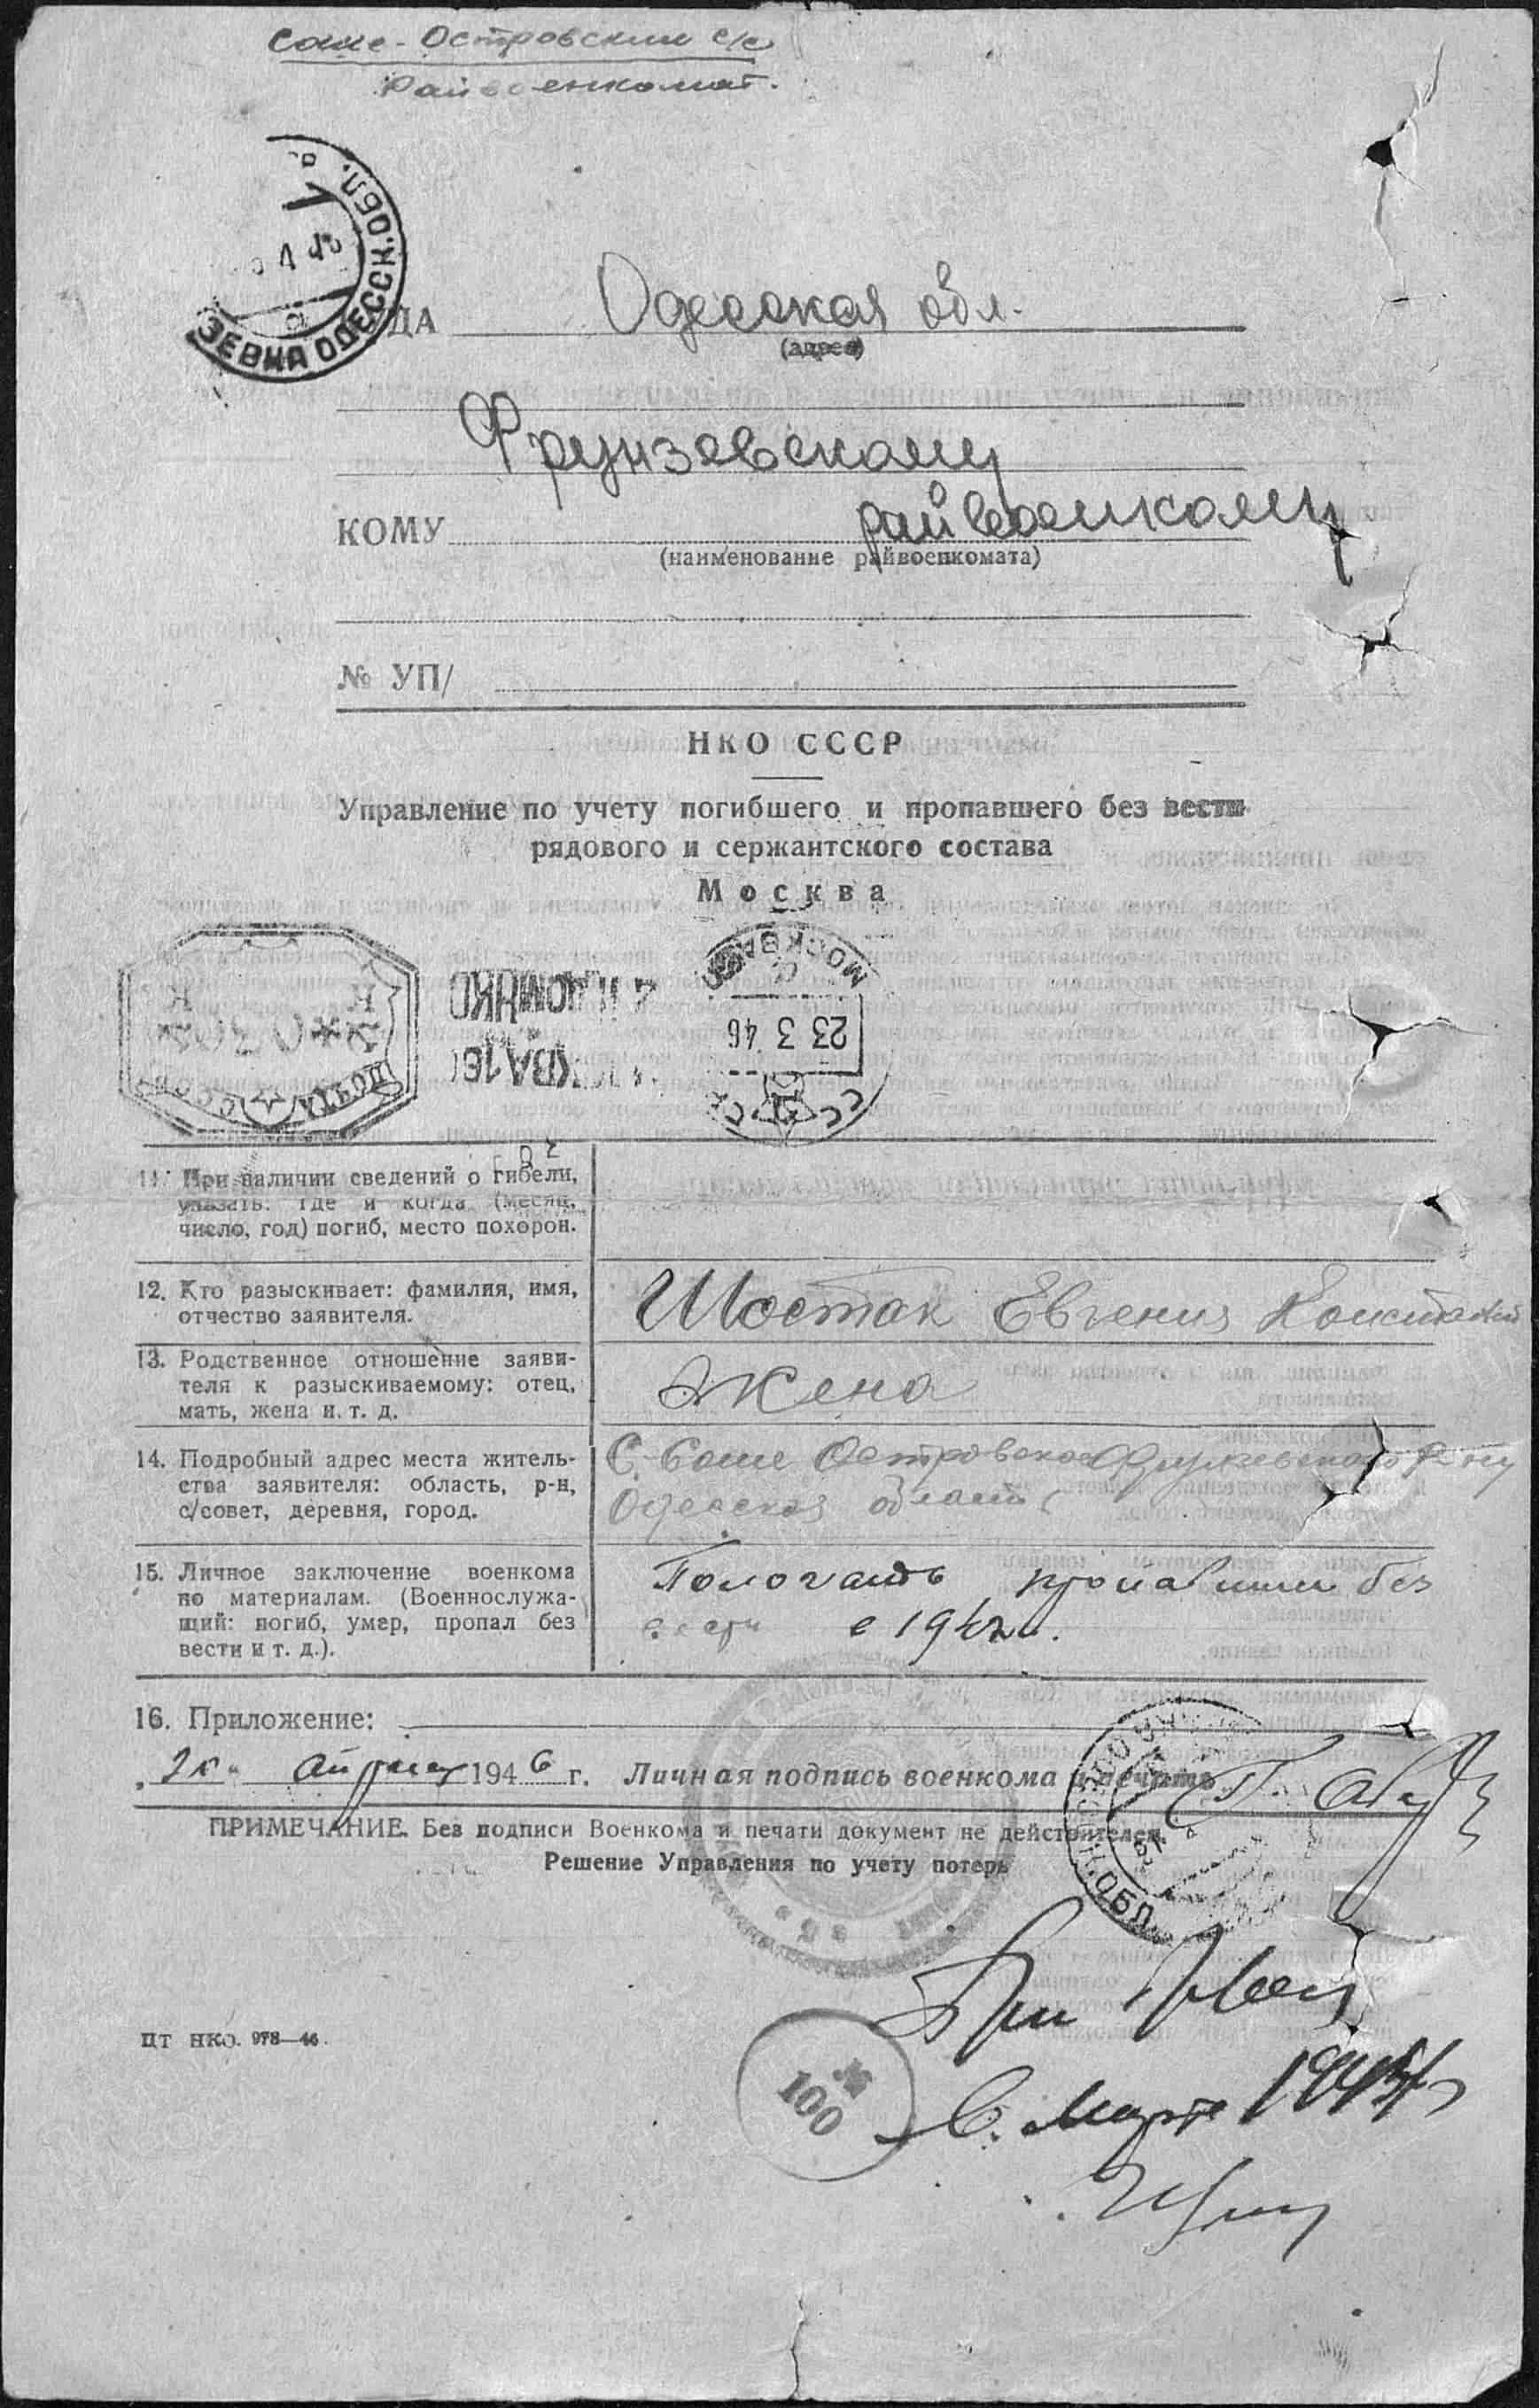 Саше-Островский с/с
Райвоенкомат.
ЗЕВКА ОДЕССК. ОБЛ.
ДА Одесская обл.
(адрес)
Фрунзевскому
КОМУ райвоенкому
(наименование райвоенкомата)
№ УП/
НКО СССР
Управление по учету погибшего и пропавшего без вести
рядового и сержантского состава
Москва
МОСКВА
23 3 46
ПОЧТА СССР
11. При наличии сведений о гибели,
указать: где и когда (месяц,
число, год) погиб, место похорон.
12. Кто разыскивает: фамилия, имя,
отчество заявителя.
Шостак Евгения
13. Родственное отношение заяви-
теля к разыскиваемому: отец,
мать, жена и. т. д.
Жена
14. Подробный адрес места житель-
ства заявителя: область, р-н,
с/совет, деревня, город.
С. Саше Островское
Одесская област
15. Личное заключение военкома
по материалам. (Военнослужа-
щий: погиб, умер, пропал без
вести и т. д.).
пропавшим без
вести в 1942
16. Приложение:
апреля 1946 г. Личная подпись военкома и печать
ПРИМЕЧАНИЕ. Без подписи Военкома и печати документ не действителен.
Решение Управления по учету потерь
ЦТ НКО. 978—46.
100
в. Марте